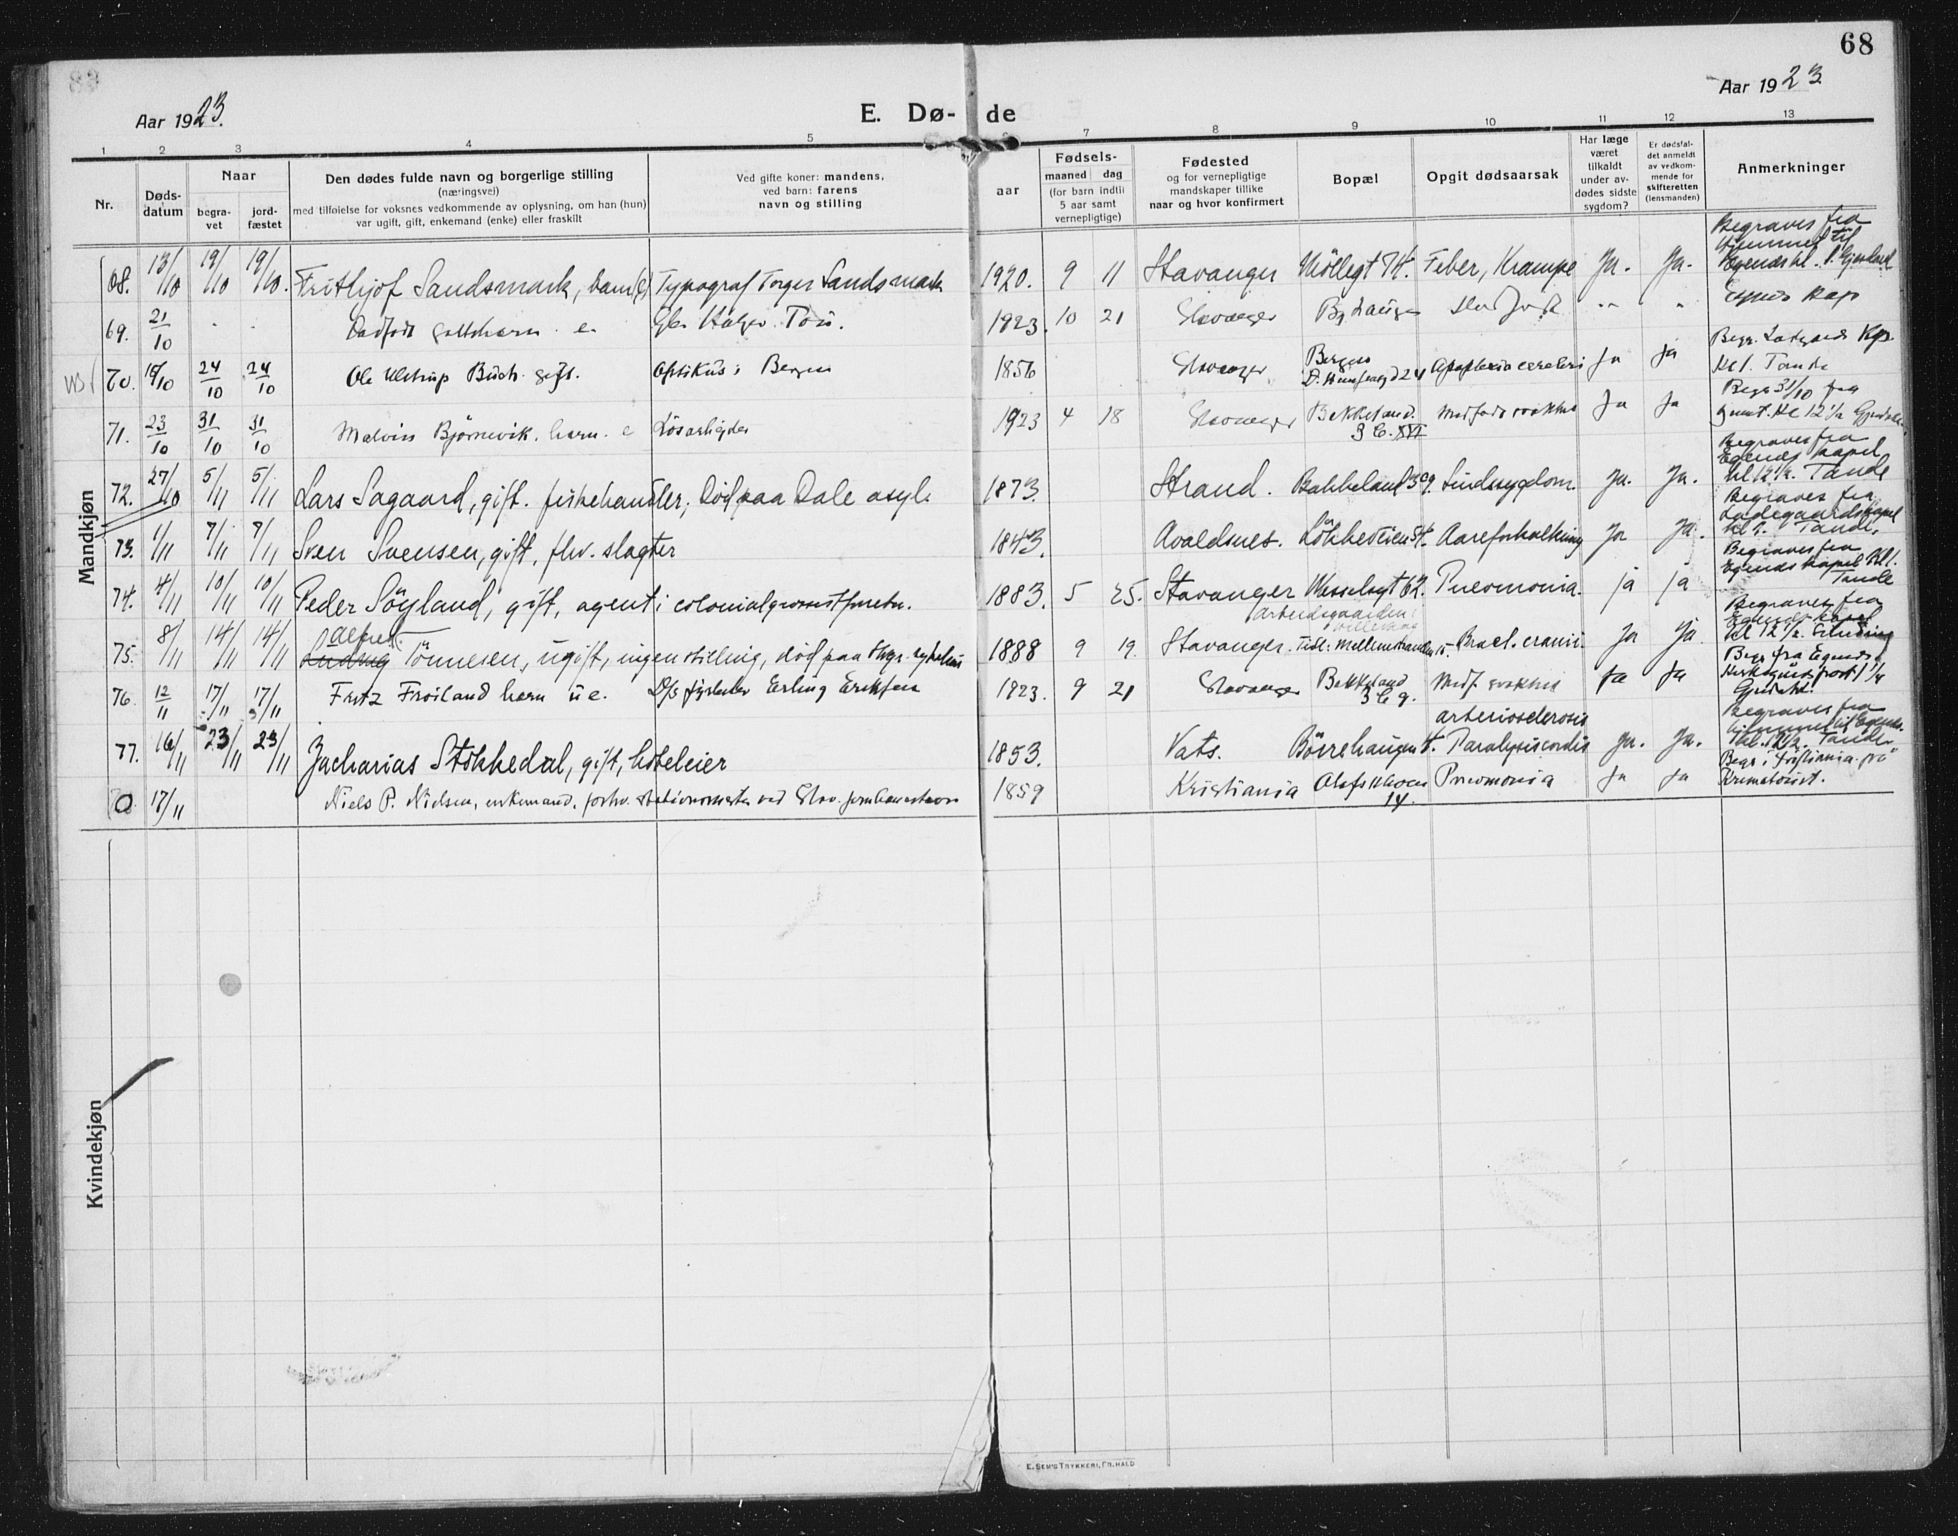 68
Aar 1923.
E. Dø- de
Aar 1923.
1 2 3 4 5 6 7 8 9 10 11 12 13
Nr.
Døds-
datum
Naar
begra-
vet
jord-
fæstet
Den dødes fulde navn og borgerlige stilling
(næringsvei)
med tilføielse for voksnes vedkommende av oplysning, om han (hun)
var ugift, gift, enkemand (enke) eller fraskilt
Ved gifte koner: mandens,
ved barn: farens
navn og stilling
aar
Fødsels-
maaned dag
(for barn indtil
5 aar samt
vernepligtige)
Fødested
og for vernepligtige
mandskaper tillike
naar og hvor konfirmert
Bopæl
Opgit dødsaarsak
Har læge
været
tilkaldt
under av-
dødes sidste
sygdom?
Er dødsfal-
det anmeldt
av vedkom-
mende for
skifteretten
(lensmanden)
Anmerkninger
Mandkjøn
68. 13/10 19/10 19/10. Frithjof Sandsmark, barn (e) Typograf Torger Sandsmark 1920. 9 11 Stavanger Møllegt 74. Feber, Krampe Ja. Ja. Begraves fra Hjemmet til Egenæs kl.
69. 21/10 Dødfødt guttebarn e. Tou. 1923. 10 21 Stavanger Dødfødt " " Egenæs Kap
70. 18/10 24/10 24/10 Ole Ulstrup Buch. gift. Optikus i Bergen 1856 Stavanger Bergen 24 Apoplexia cerebri Ja Ja Begr. Ladegaards Kap. Kl 1. Tande
71. 23/10 31/10 31/10 Malvin Bjørnevik. barn. e Løsarbeider 1923 4 18 Stavanger Bekkeland. Medfødt svakhet Ja Ja Begr 31/10 fra Kl 12 1/2
72. 27/10 5/11 5/11 Lars Sagaard, gift. fiskehandler; Død paa Dale asyl. 1873. Strand. Bakkeland 309. Sindssygdom. Ja. Ja. Begraves fra Egenæs kapel kl 12 1/2. Tande
73. 1/11 7/11 7/11 Sven Svensen, gift, fhv. slagter 1843. Avaldsnes. Aareforkalkning Ja Ja. Begraves fra Ladegaardskapel kl 1. Tande.
74. 4/11 10/11 10/11 Peder Söyland, gift, agent i colonialgrosistforretn. 1883. 5 25. Stavanger Wesselsgt 62. Pneomonia. ja ja Begraves fra Egenæs kapel Kl 1. Tande
75. 8/11 14/11 14/11 Alfred Ludvig Tönnesen, ugift, ingen stilling, död paa Stvgr. sykehus 1888 9 19. Stavanger. arbeidsgaarden: Tidl: Mellemstranden 15. Fract. cranii. Ja Ja Begraves fra Egenæs kapel kl 12 1/2.
76. 12/11 17/11 17/11 Fritz Froiland barn u e. D/S fyrböter Erling Eriksen 1923. 9 21 Stavanger Bekkeland 3 C 9. Medf. svakhet Ja Ja Begr fra Egenæs
77. 16/11 23/11 23/11 Zacharias Stokkedal, gift, hoteleier 1853. Vats. Börrehaugen 4. arteriosclerosis Paralysis cordis Ja. Ja. Begraves fra hjemmet til Egenæs. Kl. 12 1/2. Tande
0 17/11 Niels P. Nielsen, enkemand, forhv. stationsmester ved Stav. jernbanestation 1859 Kristiania 14 Pneomonia Ja Ja Begr i Kristiania fra Krematoriet.
Kvindekjøn
E. SEM'S TRYKKERI, FR.HALD